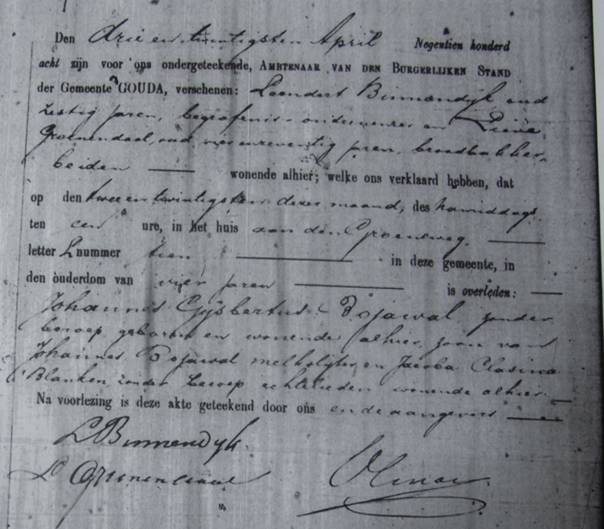 Den drie en twintigsten April Negentien honderd
acht zijn voor ons ondergeteekende, AMBTENAAR VAN DEN BURGERLIJKEN STAND
der Gemeente GOUDA, verschenen: Leendert Binnendijk oud
zestig jaren, begrafenis-ondernemer en
Groenendaal, oud jaren, broodbakker,
beiden wonende alhier; welke ons verklaard hebben, dat
op den twee en twintigsten dezer maand, des namiddags
ten een ure, in het huis aan den Groeneweg,
letter L nummer tien in deze gemeente, in
den ouderdom van vier jaren is overleden:
Johannis Gijsbertus Dojawal zonder
beroep geboren en wonende alhier, zoon van
Johannis Dojawal melkslijter, en Jacoba Clasina
Blanken, zonder beroep echtelieden wonende alhier.
Na voorlezing is deze akte geteekend door ons en de aangevers
L Binnendijk.
Groenendaal